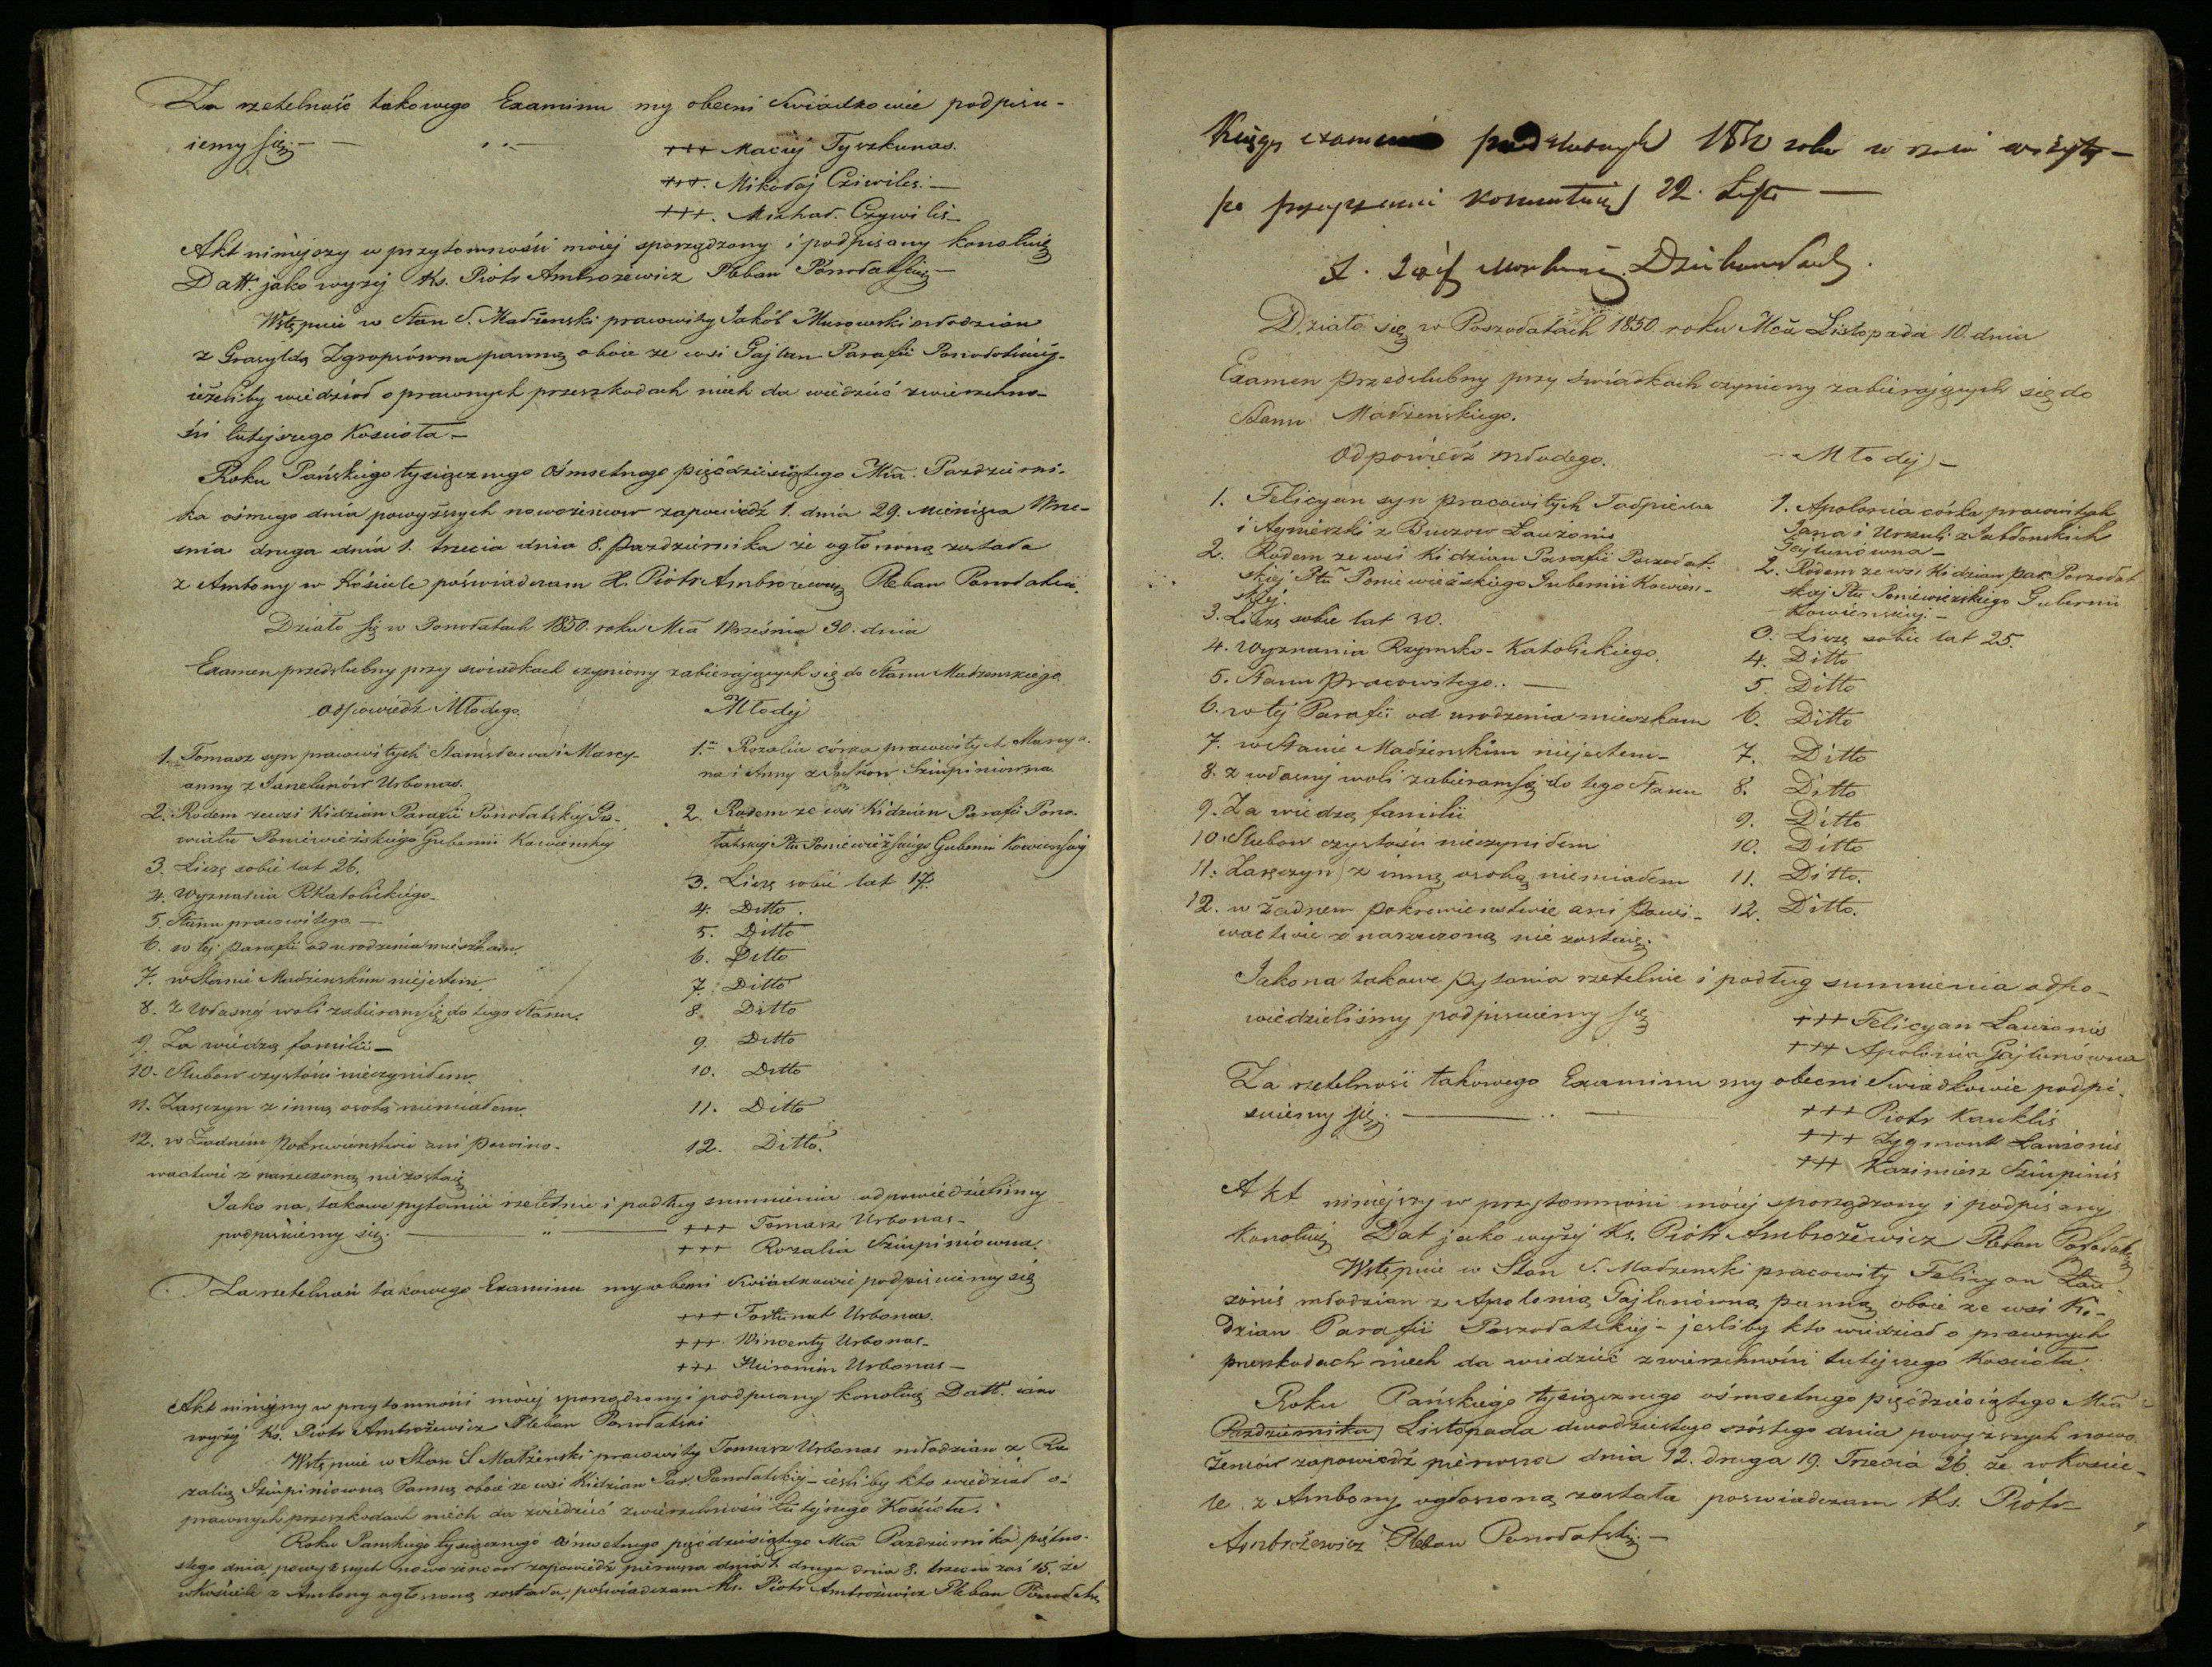 Za rzetelność takowego Examinu my obecni Swiadkowie podpisu-
iemy się. — —
+++ Maciej Tyszkunas.
+++. Mikołaj Cziwilis. —
+++. Michał. Czywilis —
Akt niniejszy w przytomności mojej sporządzony i podpisany konoluię
Datt. jako wyżej Ks. Piotr Ambrożewicz Pleban
Wstępuie w Stan S. Małżenski pracowity Jakób Murowski młodzian
z panną oboie ze wsi Gajlun Parafii
ieżeliby wiedział o prawnych przeszkodach niech da wiedzieć zwierzchno-
ści tutejszego Koscioła —
Roku Pańskiego tysiącznego Osmsetnego pięćdziesiątego Mca. Pazdzierni-
ka ósmego dnia powyższych nowożencow zapowiedź 1. dnia 29. miesiąca Wrze-
snia druga dnia 1. trzecia dnia 8. Pazdziernika że ogłoszoną została
z Ambony w Kościele poświadczam X. Piotr Ambrożewicz Pleban
Działo się w Ponodałach 1850. roku Mca Września 30. dnia
Examen przedslubny przy swiadkach czyniony zabierających się do Stanu Małżenskiego.
odpowiedź Młodego. Młodej
1. Tomasz syn pracowitych Stanisława i Marcy-
anny z Janelunów Urbonas.
2. Rodem ze wsi Kidzian Parafii Ponodałskiej Po-
wiatu Poniewieżskiego Gubernii Kowienskiej
3. Liczę sobie lat 26.
4. Wyznania RKatolickiego.
5. Stanu pracowitego. —
6. w tej parafii od urodzenia mieszkam.
7. w Stanie Małżenskim niejestem.
8. Z własnej woli zabieram się do tego Stanu.
9. Za wiedzą familii —
10. Slubow czystości nieczyniłem.
11. Zaręczyn z inną osobą niemiałem.
12. w Żadnem pokrewieństwie ani powino-
wactwie z narzeczoną niezostaię
1. Rozalia córka pracowitych Marcya-
na i Anny z Sziupiniowna.
2. Rodem ze wsi Kidzian Parafii Pono-
łatskiej Ptu Poniewieżskiego Gubernii Kowienskiej
3. Liczę sobie lat 17.
4. Ditto.
5. Ditto
6. Ditto
7. Ditto
8. Ditto
9. Ditto
10. Ditto
11. Ditto
12. Ditto.
Jako na takowe pytanie rzetelnie i podług sumnienia odpowiedzielismy
podpisuiemy się. —— +++ Tomasz Urbonas —
+++ Rozalia Sziupiniowna.
Za rzetelność takowego Examinu my obecni Swiadkowie podpisuiemy się
+++ Fortunat Urbonas.
+++ Wincenty Urbonas —
+++ Hieronim Urbonas —
Akt niniejszy w przytomności mojej sporządzony i podpisany konoluię Datt. iako
wyżej Ks. Piotr Ambrożewicz Pleban Ponodałski
Wstępuie w Stan S Małżenski pracowity Tomasz Urbonas młodzian z Ro
zalią Sziupiniowną Panną oboie ze wsi Kidzian Par. Ponodałskiej — iesliby kto wiedział o
prawnych przeszkodach niech da wiedzieć zwierzchności tutejszego Kościoła.
Roku Panskiego tysiącznego ośmsetnego pięćdziesiątego Mca Pazdziernika piętna-
stego dnia powyższych nowożencow zapowiedź pierwsza dnia 1. druga dnia 8. trzecia zaś 15. że
w Kościele z Ambony ogłoszoną została, poświadczam Ks. Piotr Ambrożewicz Pleban
Księga przedslubnych 1850 roku w
po 22.
Działo się w Poszodałach 1850 roku Mca Listopada 10. dnia
Examen przedslubny przy świadkach czyniony zabierających się do
Stanu Małżenskiego.
Odpowiedź młodego. Młodej —
1. Felicyan syn pracowitych
i Agnieszki z Buczow Lauzonis
2. Rodem ze wsi Kidzian Parafii Poszodał-
skiej Ptu Poniewieżskiego Gubernii Kowien-
skiej.
3. Liczę sobie lat 30.
4. Wyznania Rzymsko-Katolickiego.
5. Stanu Pracowitego. —
6. w tej Parafii od urodzenia mieszkam
7. w Stanie Małżenskim niejestem —
8. z własnej woli zabieram się do tego Stanu
9. Za wiedzą familii
10. Slubow czystości nieczyniłem
11. Zaręczyn z inną osobą niemiałem
12. w żadnem pokrewienstwie ani powi-
wactwie z narzeczoną nie zostaię.
1. Apolonia córka pracowitych
Jana i Urszuli z Jabłonskich
Gajlunówna —
2. Rodem ze wsi Kidzian par. Poszodał
skiej Ptu Poniewieżskiego Gubernii
Kowienskiej. —
3. Liczę sobie lat 25.
4. Ditto
5. Ditto
6. Ditto
7. Ditto
8. Ditto
9. Ditto
10. Ditto
11. Ditto.
12. Ditto.
Jako na takowe pytania rzetelnie i podług sumnienia odpo-
wiedzieliśmy podpisuiemy się
+++ Felicyan Lauzonis
+++ Apolonia Gajlunówna
Za rzetelność takowego Examinu my obecni Swiadkowie podpi-
suiemy się. ——
+++ Piotr Kauklis
+++ Zygmont Lauzonis
+++ Kazimierz Sziupinis
Akt niniejszy w przytomności mojej sporządzony i podpisany
konoluię Dat jako wyżej Ks. Piotr Ambrożewicz Pleban
Wstępuie w Stan S. Małżenski pracowity Felicyan Lau
zonis młodzian z Apolonią Gajlunówną panną oboie ze wsi Ki-
dzian Parafii Poszodałskiej — jesliby kto wiedział o prawnych
przeszkodach niech da wiedzieć zwierzchności tutejszego Kościoła.
Roku Pańskiego tysiącznego ośmsetnego pięćdziesiątego Mca
Pazdziernika Listopada dwudziestego szóstego dnia powyzszych nowo
żencow zapowiedź pierwsza dnia 12. druga 19. Trzecia 26. że w Koscie-
le z Ambony ogłoszoną została poswiadczam Ks. Piotr
Ambrożewicz Pleban Ponodałski. —